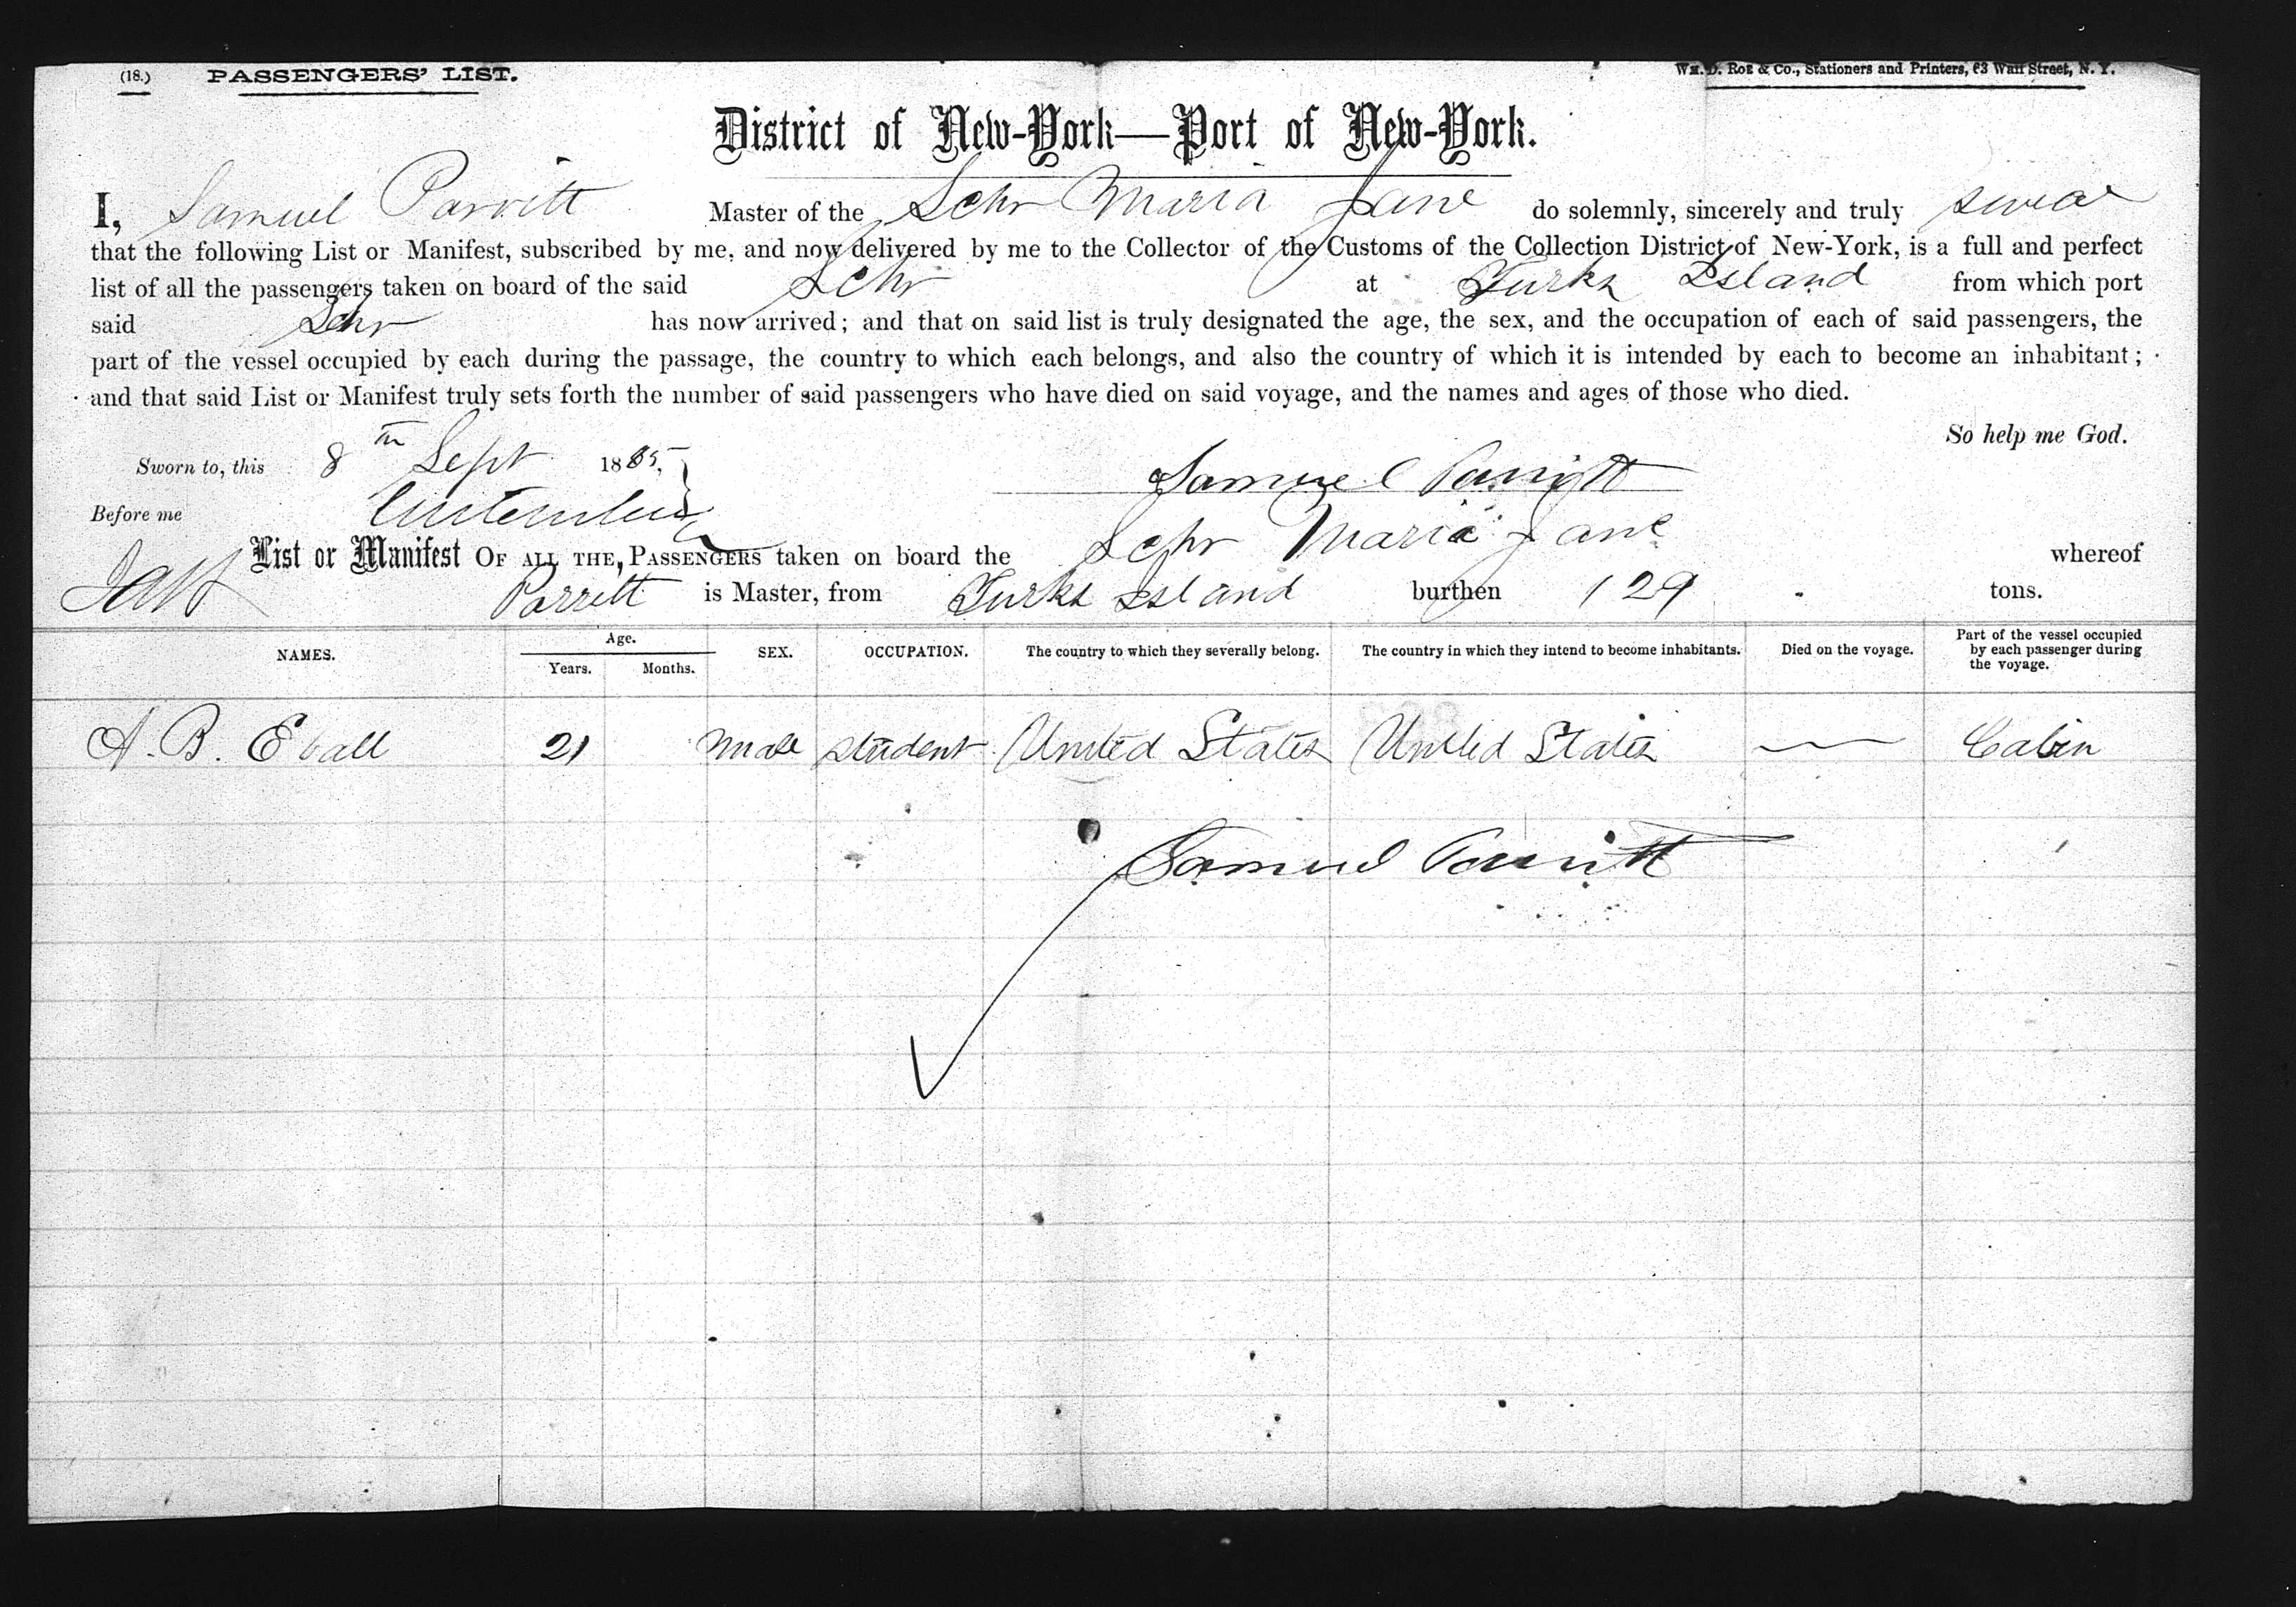 (18.) PASSENGERS' LIST.
Wm. D. Roe & Co., Stationers and Printers, 63 Wall Street, N. Y.
District of New-York—Port of New-York.
I, Samuel Parritt Master of the Schr Maria Jane do solemnly, sincerely and truly swear
that the following List or Manifest, subscribed by me, and now delivered by me to the Collector of the Customs of the Collection District of New-York, is a full and perfect
list of all the passengers taken on board of the said Schr at Turks Island from which port
said Schr has now arrived; and that on said list is truly designated the age, the sex, and the occupation of each of said passengers, the
part of the vessel occupied by each during the passage, the country to which each belongs, and also the country of which it is intended by each to become an inhabitant;
and that said List or Manifest truly sets forth the number of said passengers who have died on said voyage, and the names and ages of those who died.
So help me God.
Sworn to, this 8th Sept 1865,
Samuel Parritt
Before me
List or Manifest OF ALL THE PASSENGERS taken on board the Schr Maria Jane whereof
Parrett is Master, from Turks Island burthen 129 tons.
NAMES. Age. Years. Months. SEX. OCCUPATION. The country to which they severally belong. The country in which they intend to become inhabitants. Died on the voyage. Part of the vessel occupied by each passenger during the voyage.
A. B. 21 male student United States United States — Cabin
Samuel Parritt